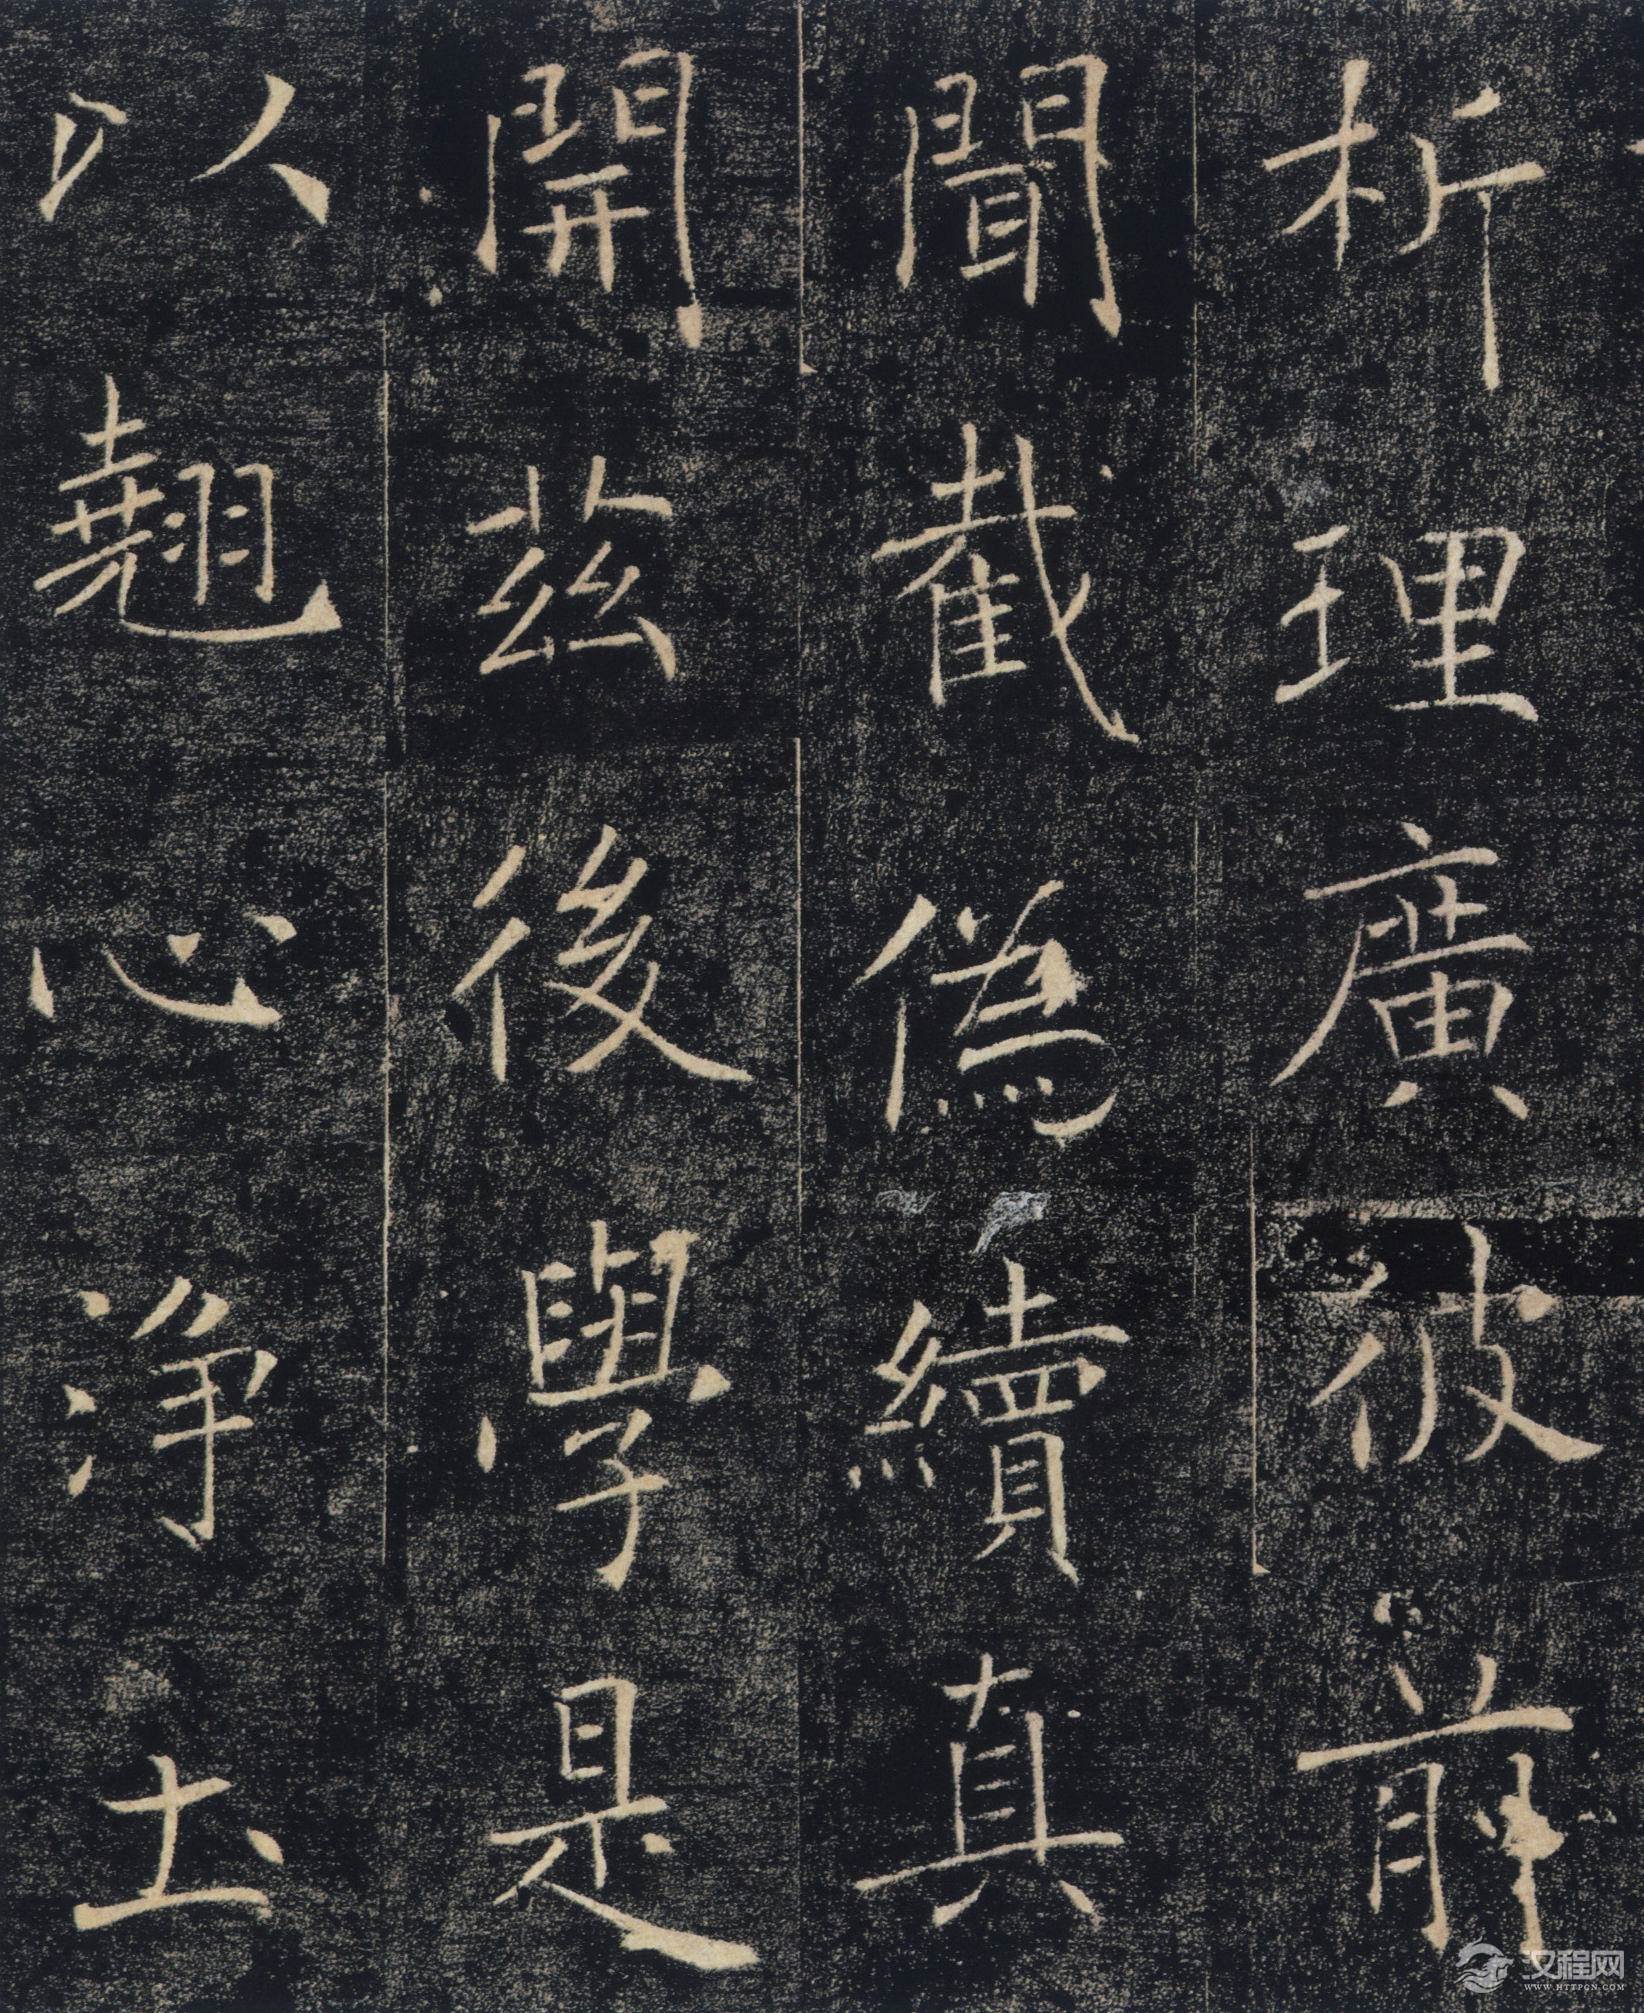 析理廣彼前
聞截偽續真
開茲後學是
以翹心淨土
汉程网
WWW.HTTPCN.COM